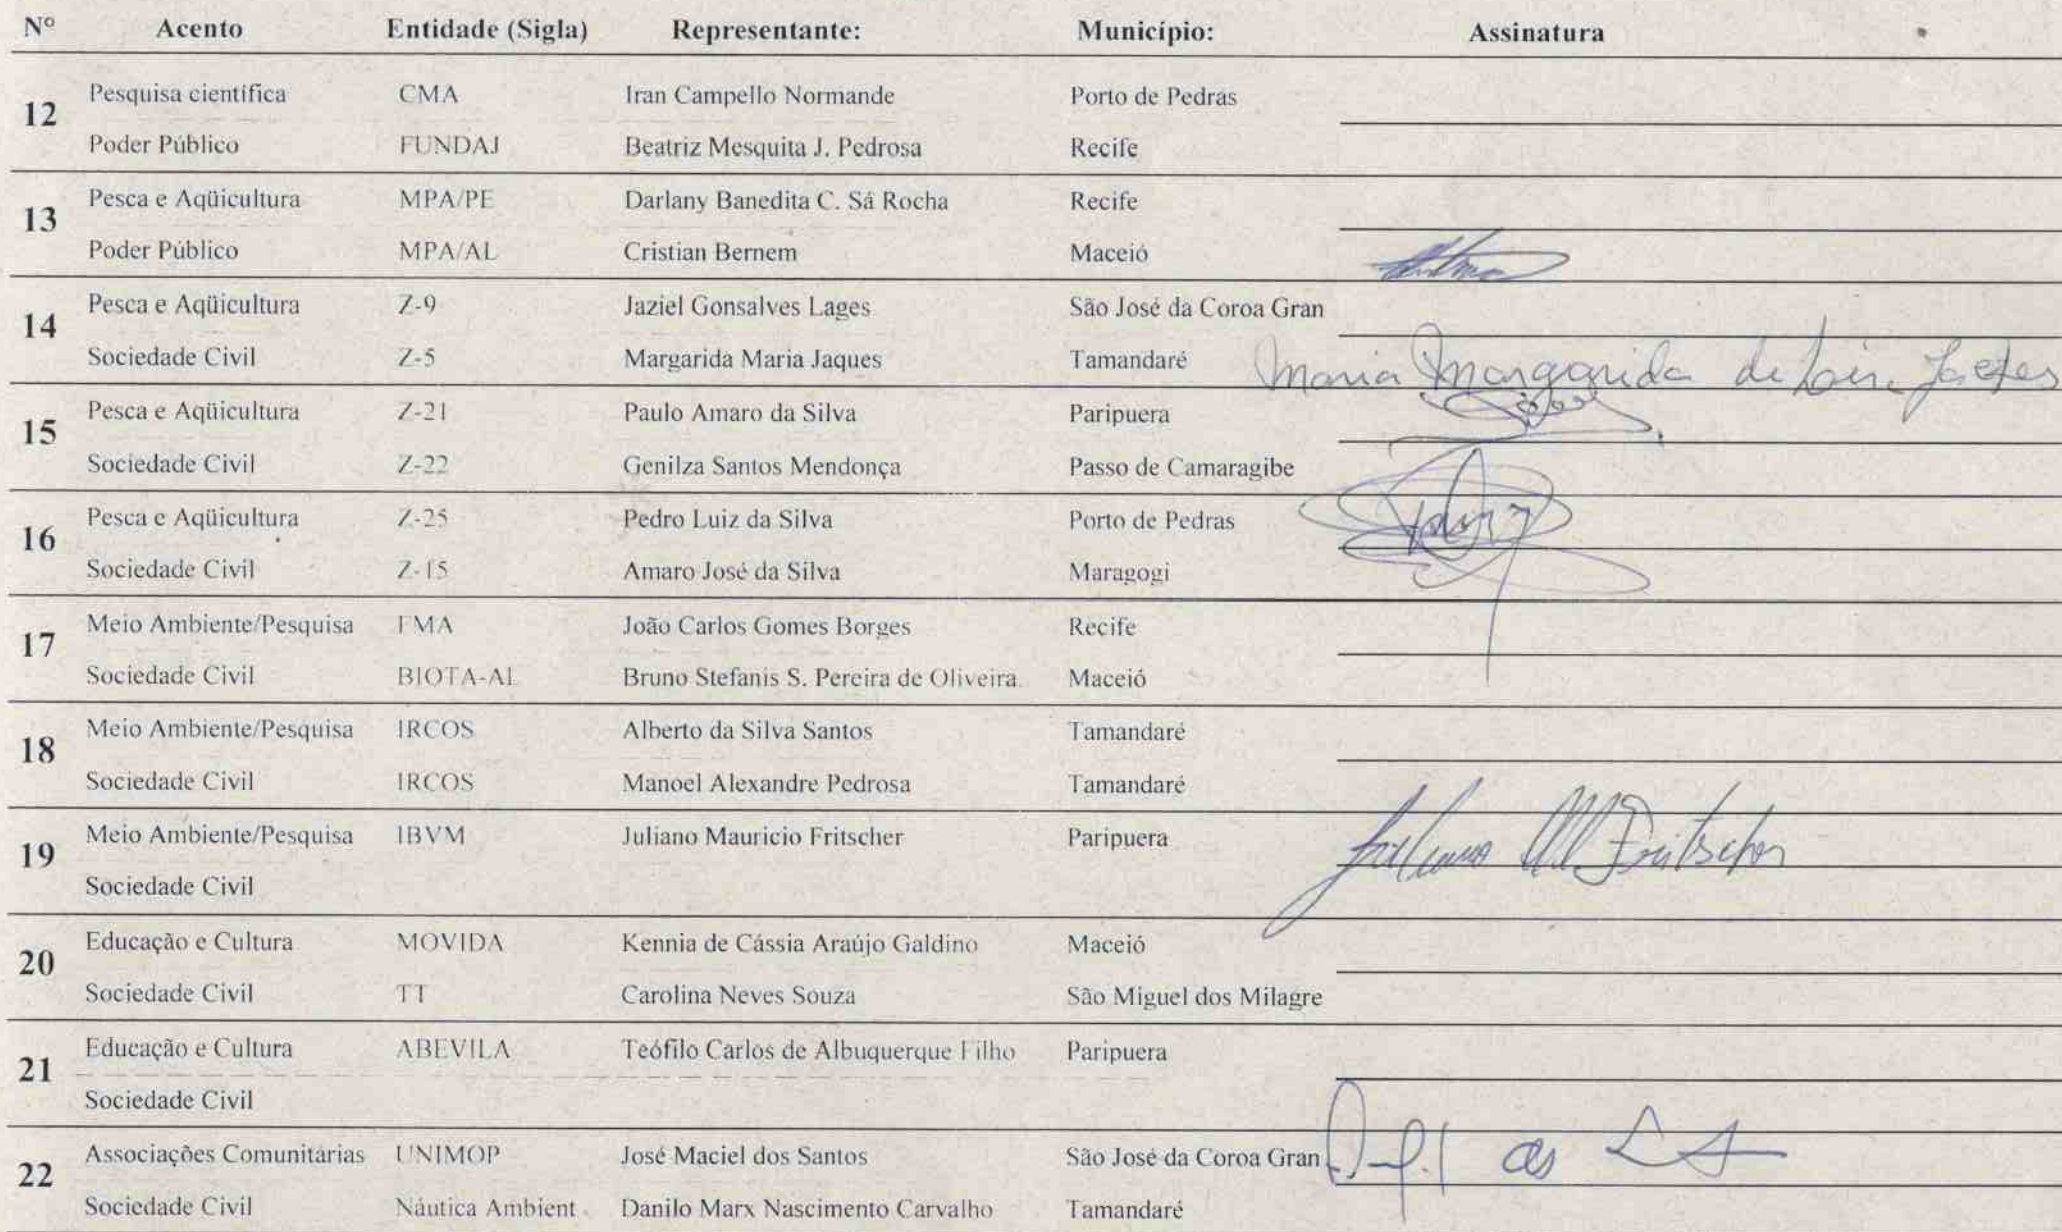 Nº Acento Entidade (Sigla) Representante: Município: Assinatura
12 Pesquisa científica CMA Iran Campello Normande Porto de Pedras
Poder Público FUNDAJ Beatriz Mesquita J. Pedrosa Recife
13 Pesca e Aqüicultura MPA/PE Darlany Banedita C. Sá Rocha Recife
Poder Público MPA/AL Cristian Bernem Maceió
14 Pesca e Aqüicultura Z-9 Jaziel Gonsalves Lages São José da Coroa Gran
Sociedade Civil Z-5 Margarida Maria Jaques Tamandaré Maria Margarida de
15 Pesca e Aqüicultura Z-21 Paulo Amaro da Silva Paripuera
Sociedade Civil Z-22 Genilza Santos Mendonça Passo de Camaragibe
16 Pesca e Aqüicultura Z-25 Pedro Luiz da Silva Porto de Pedras
Sociedade Civil Z-15 Amaro José da Silva Maragogi
17 Meio Ambiente/Pesquisa FMA João Carlos Gomes Borges Recife
Sociedade Civil BIOTA-AL Bruno Stefanis S. Pereira de Oliveira Maceió
18 Meio Ambiente/Pesquisa IRCOS Alberto da Silva Santos Tamandaré
Sociedade Civil IRCOS Manoel Alexandre Pedrosa Tamandaré
19 Meio Ambiente/Pesquisa IBVM Juliano Mauricio Fritscher Paripuera Juliano M Fritscher
Sociedade Civil
20 Educação e Cultura MOVIDA Kennia de Cássia Araújo Galdino Maceió
Sociedade Civil TT Carolina Neves Souza São Miguel dos Milagre
21 Educação e Cultura ABEVILA Teófilo Carlos de Albuquerque Filho Paripuera
Sociedade Civil
22 Associações Comunitárias UNIMOP José Maciel dos Santos São José da Coroa Gran
Sociedade Civil Náutica Ambient Danilo Marx Nascimento Carvalho Tamandaré